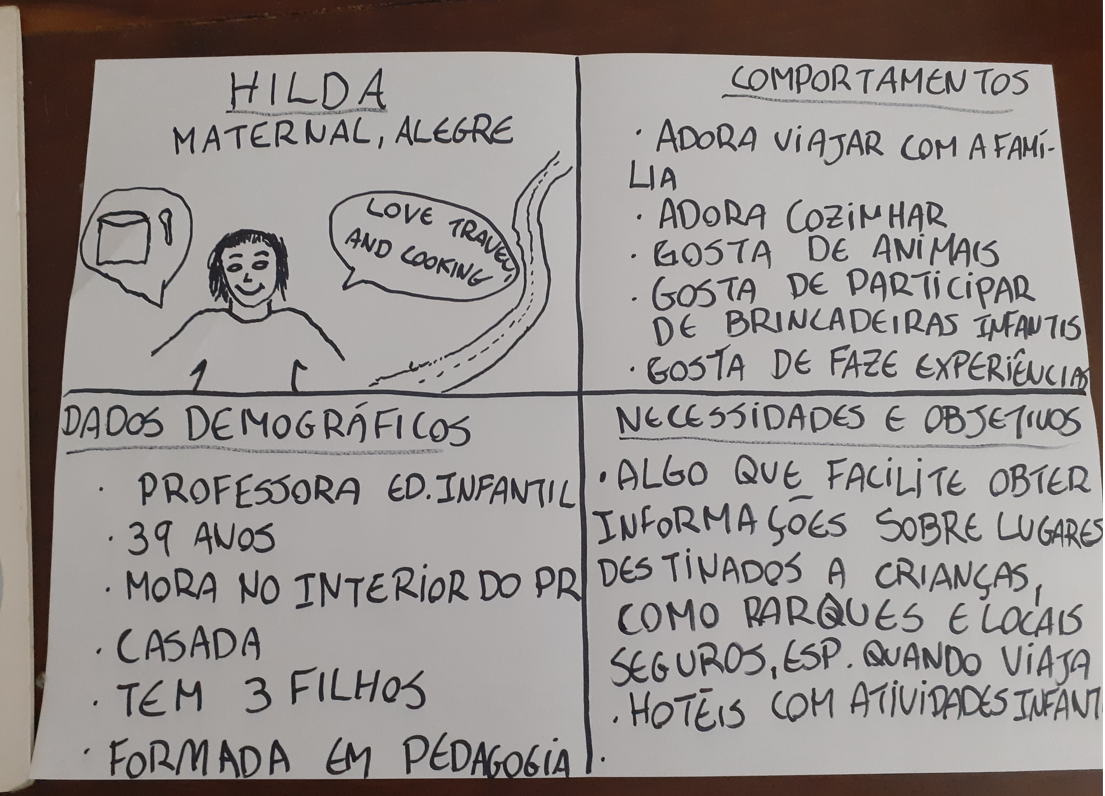 HILDA
MATERNAL, ALEGRE
LOVE TRAVEL
AND COOKING
COMPORTAMENTOS
· ADORA VIAJAR COM A FAMÍ-
LIA
· ADORA COZINHAR
· GOSTA DE ANIMAIS
· GOSTA DE PARTICIPAR
DE BRINCADEIRAS INFANTIS
· GOSTA DE FAZE EXPERIÊNCIAS
DADOS DEMOGRÁFICOS
· PROFESSORA ED. INFANTIL
· 39 ANOS
· MORA NO INTERIOR DO PR
· CASADA
· TEM 3 FILHOS
· FORMADA EM PEDAGOGIA
NECESSIDADES E OBJETIVOS
· ALGO QUE FACILITE OBTER
INFORMAÇÕES SOBRE LUGARES
DESTINADOS A CRIANÇAS,
COMO PARQUES E LOCAIS
SEGUROS, ESP. QUANDO VIAJA
· HOTÉIS COM ATIVIDADES INFANTI
·